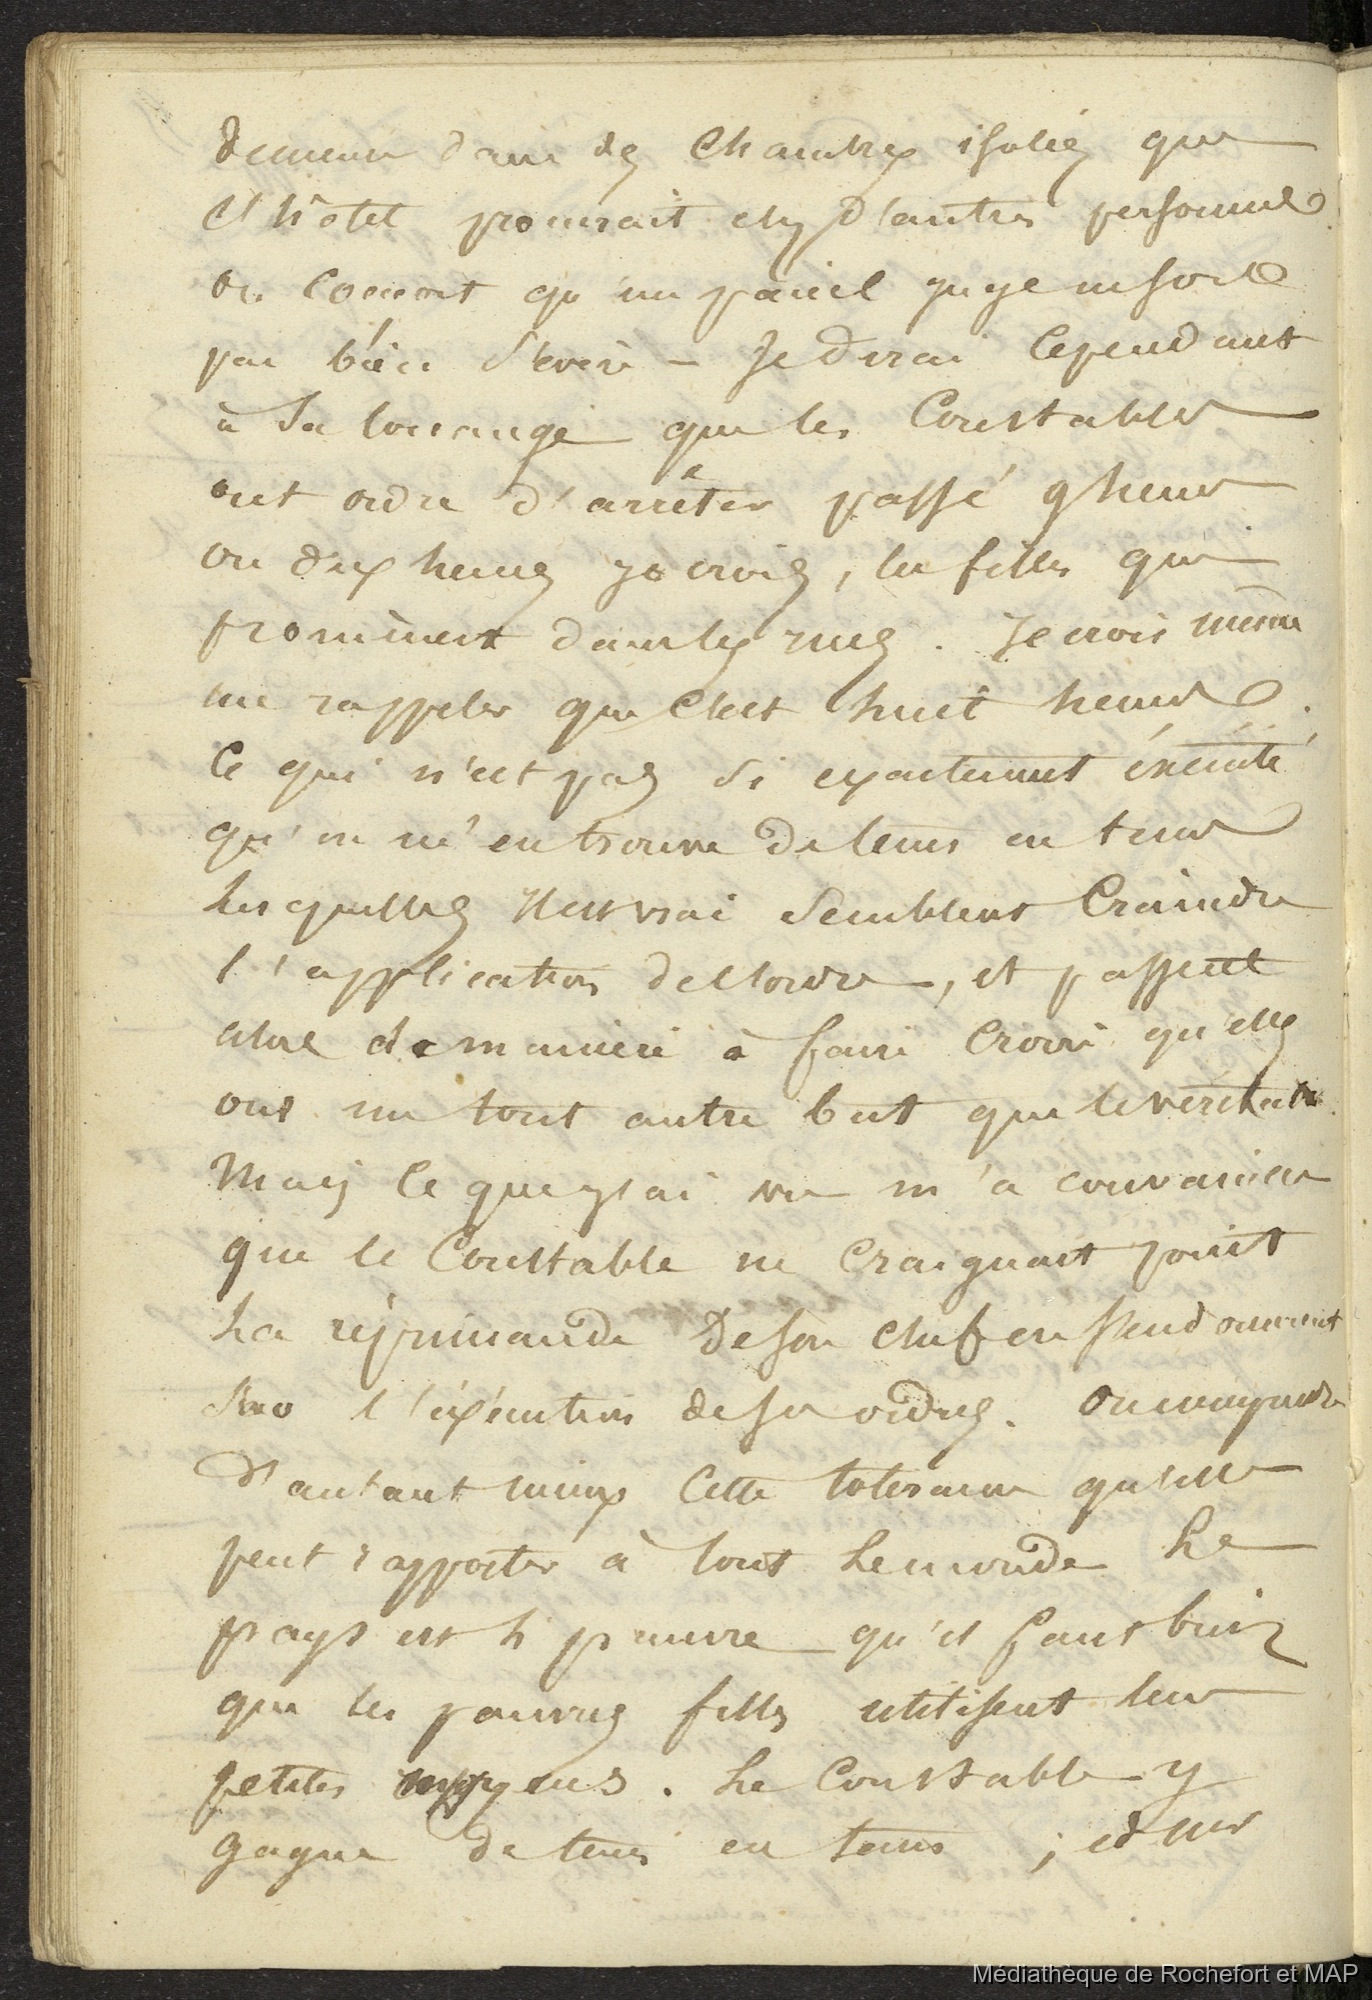 demeurer dans des Chambres isolées que
l'hotel pourrait chez d'autres personnes
on connoit qu'un pareil juge ne soit
pas bien sévère – Je dirai cependant
à sa louange que les Constables
ont ordre d'arrêter passé 9 heures
ou dix heures je crois, les filles qui
promènent dans les rues. Je crois même
me rappeler que c'est huit heures.
Ce qui n'est pas si exactement éxécuté
qu'on n'en trouve de tems en tems
Lesquelles il est vrai semblent Craindre
l'application de l'ordre, et passent
alors de manière à faire Croire qu'elles
ont un tout autre but que le véritable.
Mais ce que j'ai vu m'a convaincu
que le Constable ne Craignait point
La réprimande de son chef en s'endormant
sur l'éxécution de ses ordres. On comprendra
d'autant mieux Cette tolérance qu'elle
peut rapporter à tout le monde Le
pays est si pauvre qu'il faut bien
que les pauvres filles utilisent leurs
petits moyens. Le Constable y
gagne de tems en tems ; et